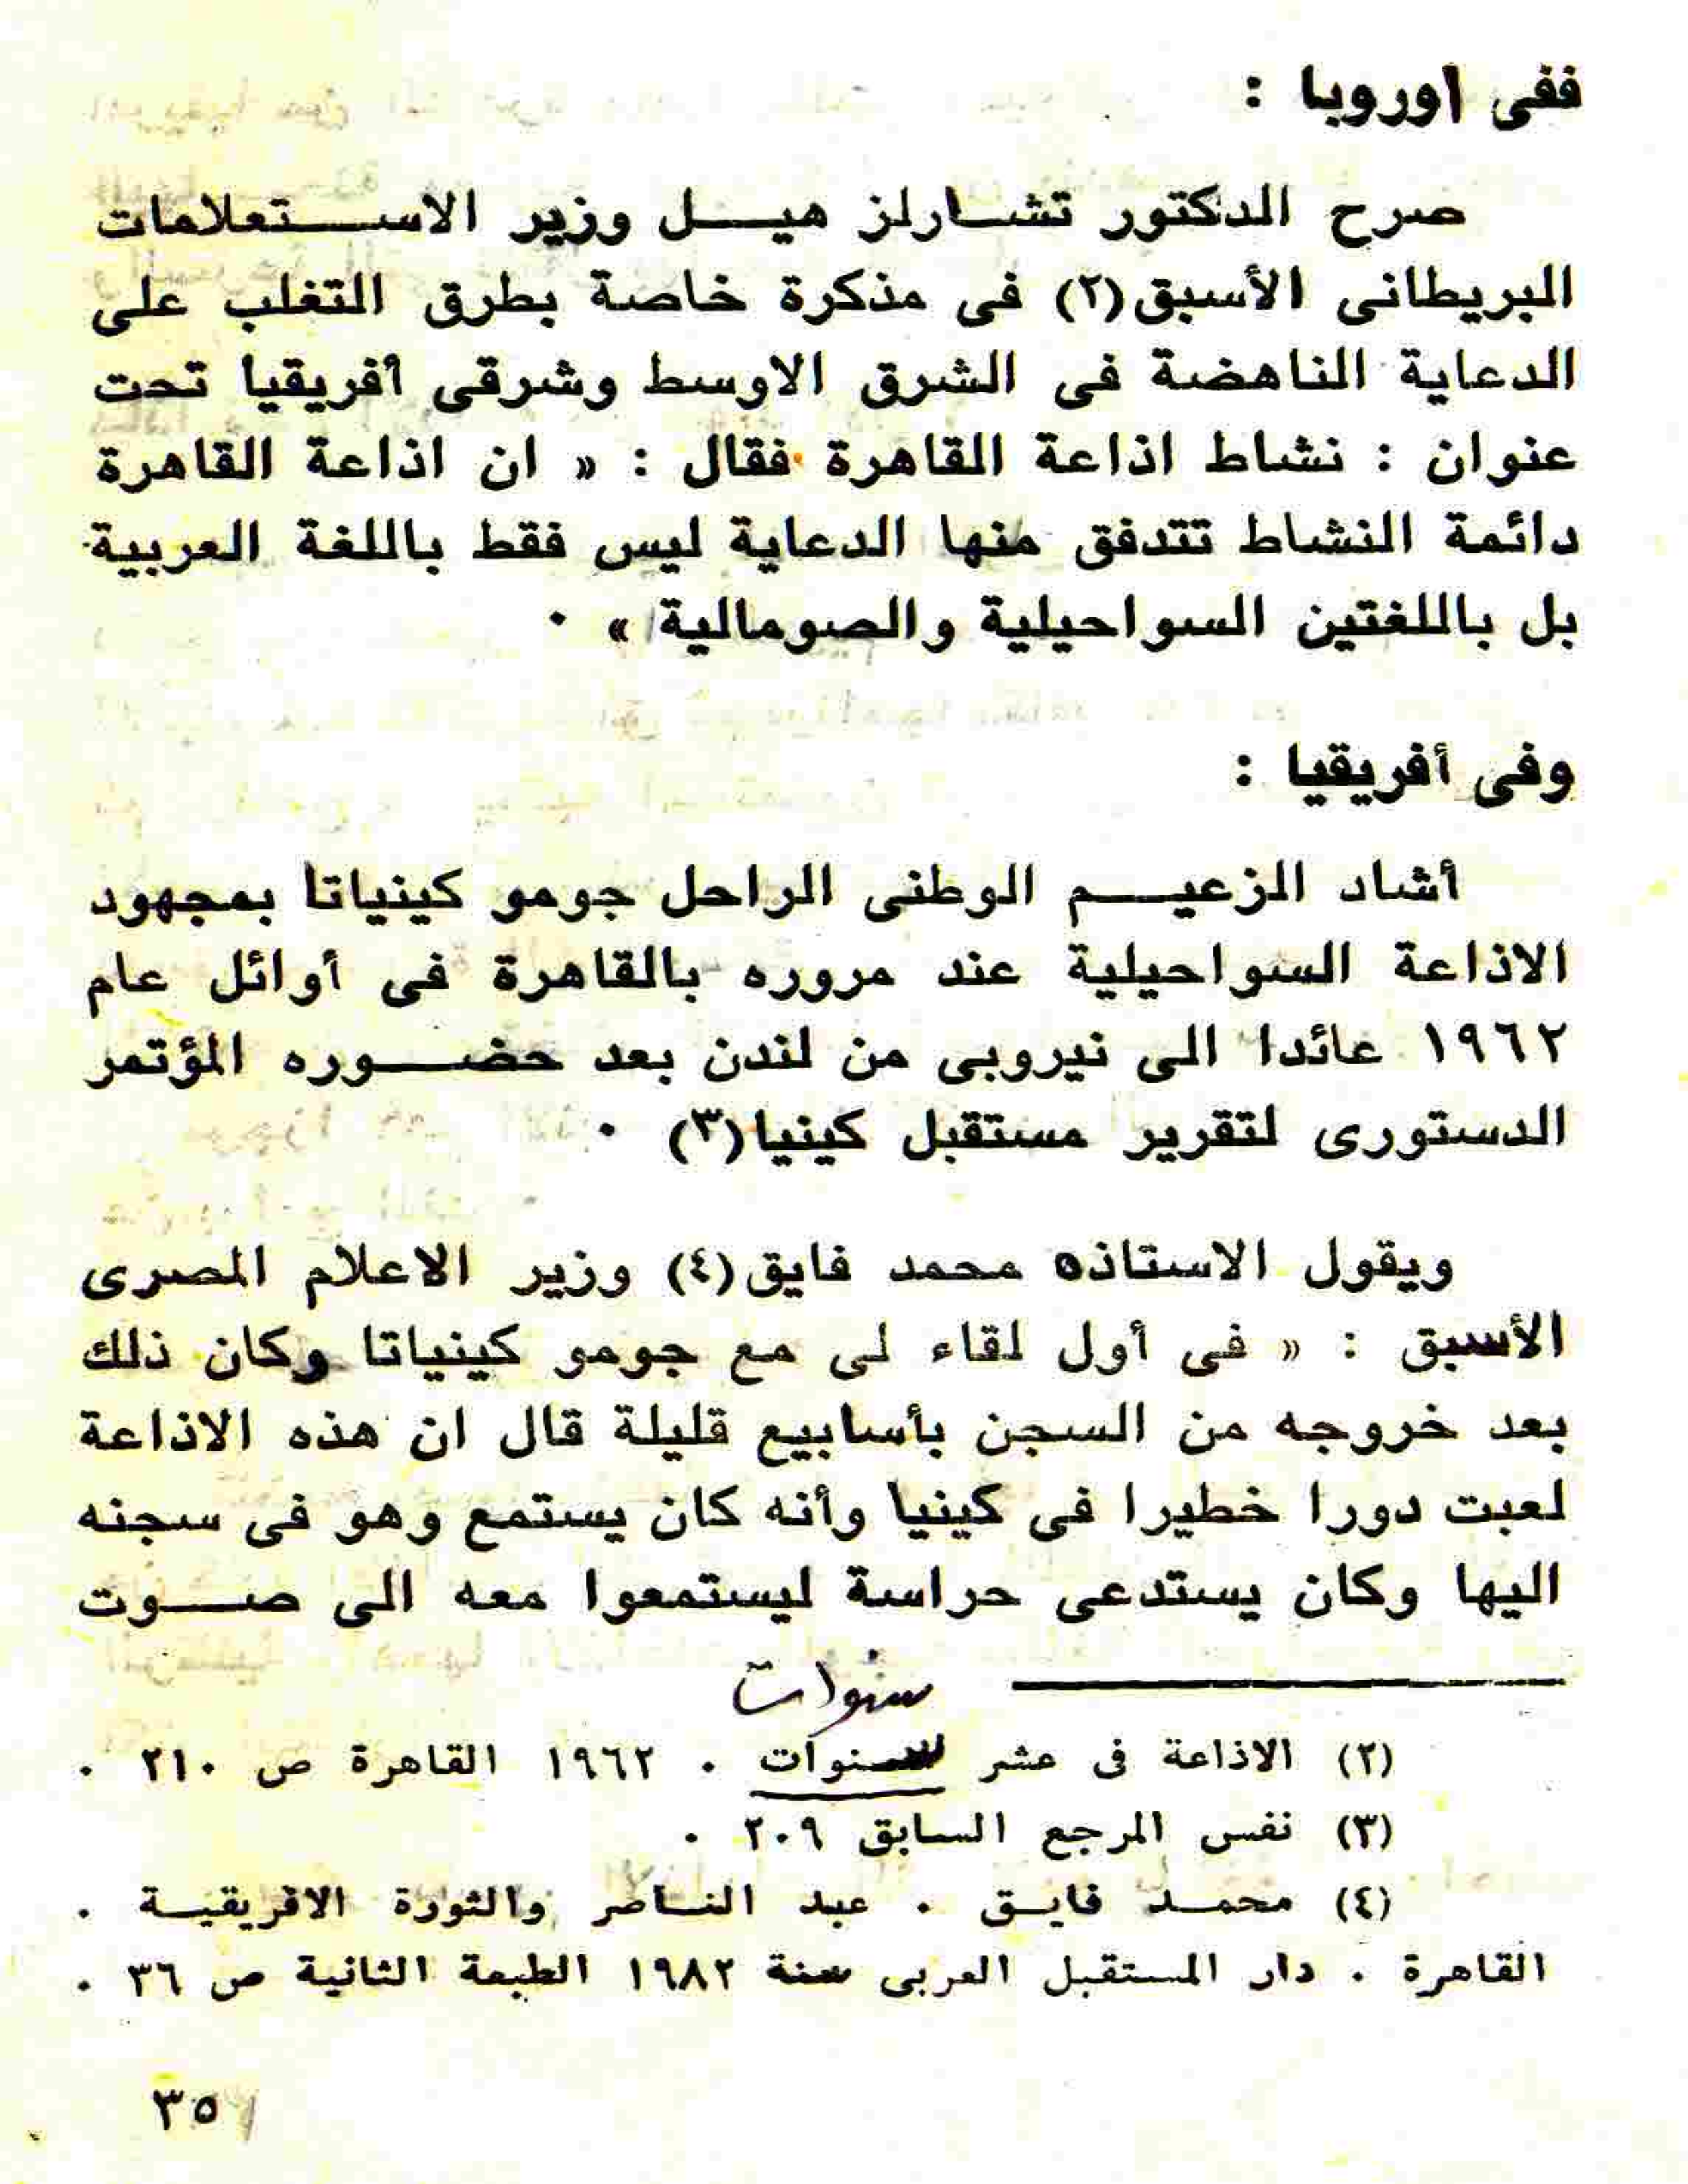 ففى اوروبا :
صرح الدكتور تشـارلز هيـــل وزير الاســـتعلامات
البريطانى الأسبق(٢) فى مذكرة خاصة بطرق التغلب على
الدعاية الناهضة فى الشرق الاوسط وشرقى أفريقيا تحت
عنوان : نشاط اذاعة القاهرة فقال : « ان اذاعة القاهرة
دائمة النشاط تتدفق منها الدعاية ليس فقط باللغة العربية
بل باللغتين السواحيلية والصومالية » ٠
وفى أفريقيا :
أشاد الزعيـــم الوطنى الراحل جومو كينياتا بمجهود
الاذاعة السواحيلية عند مروره بالقاهرة فى أوائل عام
١٩٦٢ عائدا الى نيروبى من لندن بعد حضـــوره المؤتمر
الدستورى لتقرير مستقبل كينيا(٣) ٠
ويقول الاستاذه محمد فايق(٤) وزير الاعلام المصرى
الأسبق : « فى أول لقاء لى مع جومو كينياتا وكان ذلك
بعد خروجه من السجن بأسابيع قليلة قال ان هذه الاذاعة
لعبت دورا خطيرا فى كينيا وأنه كان يستمع وهو فى سجنه
اليها وكان يستدعى حراسة ليستمعوا معه الى صـــوت
سنوات
(٢) الاذاعة فى عشر سنوات ٠ ١٩٦٢ القاهرة ص ٢١٠ ٠
(٣) نفس المرجع السابق ٢٠٩ ٠
(٤) محمـــد فايـق ٠ عبد النـاصر والثورة الافريقيـة ٠
القاهرة ٠ دار المستقبل العربى سنة ١٩٨٢ الطبعة الثانية ص ٣٦ ٠
٣٥